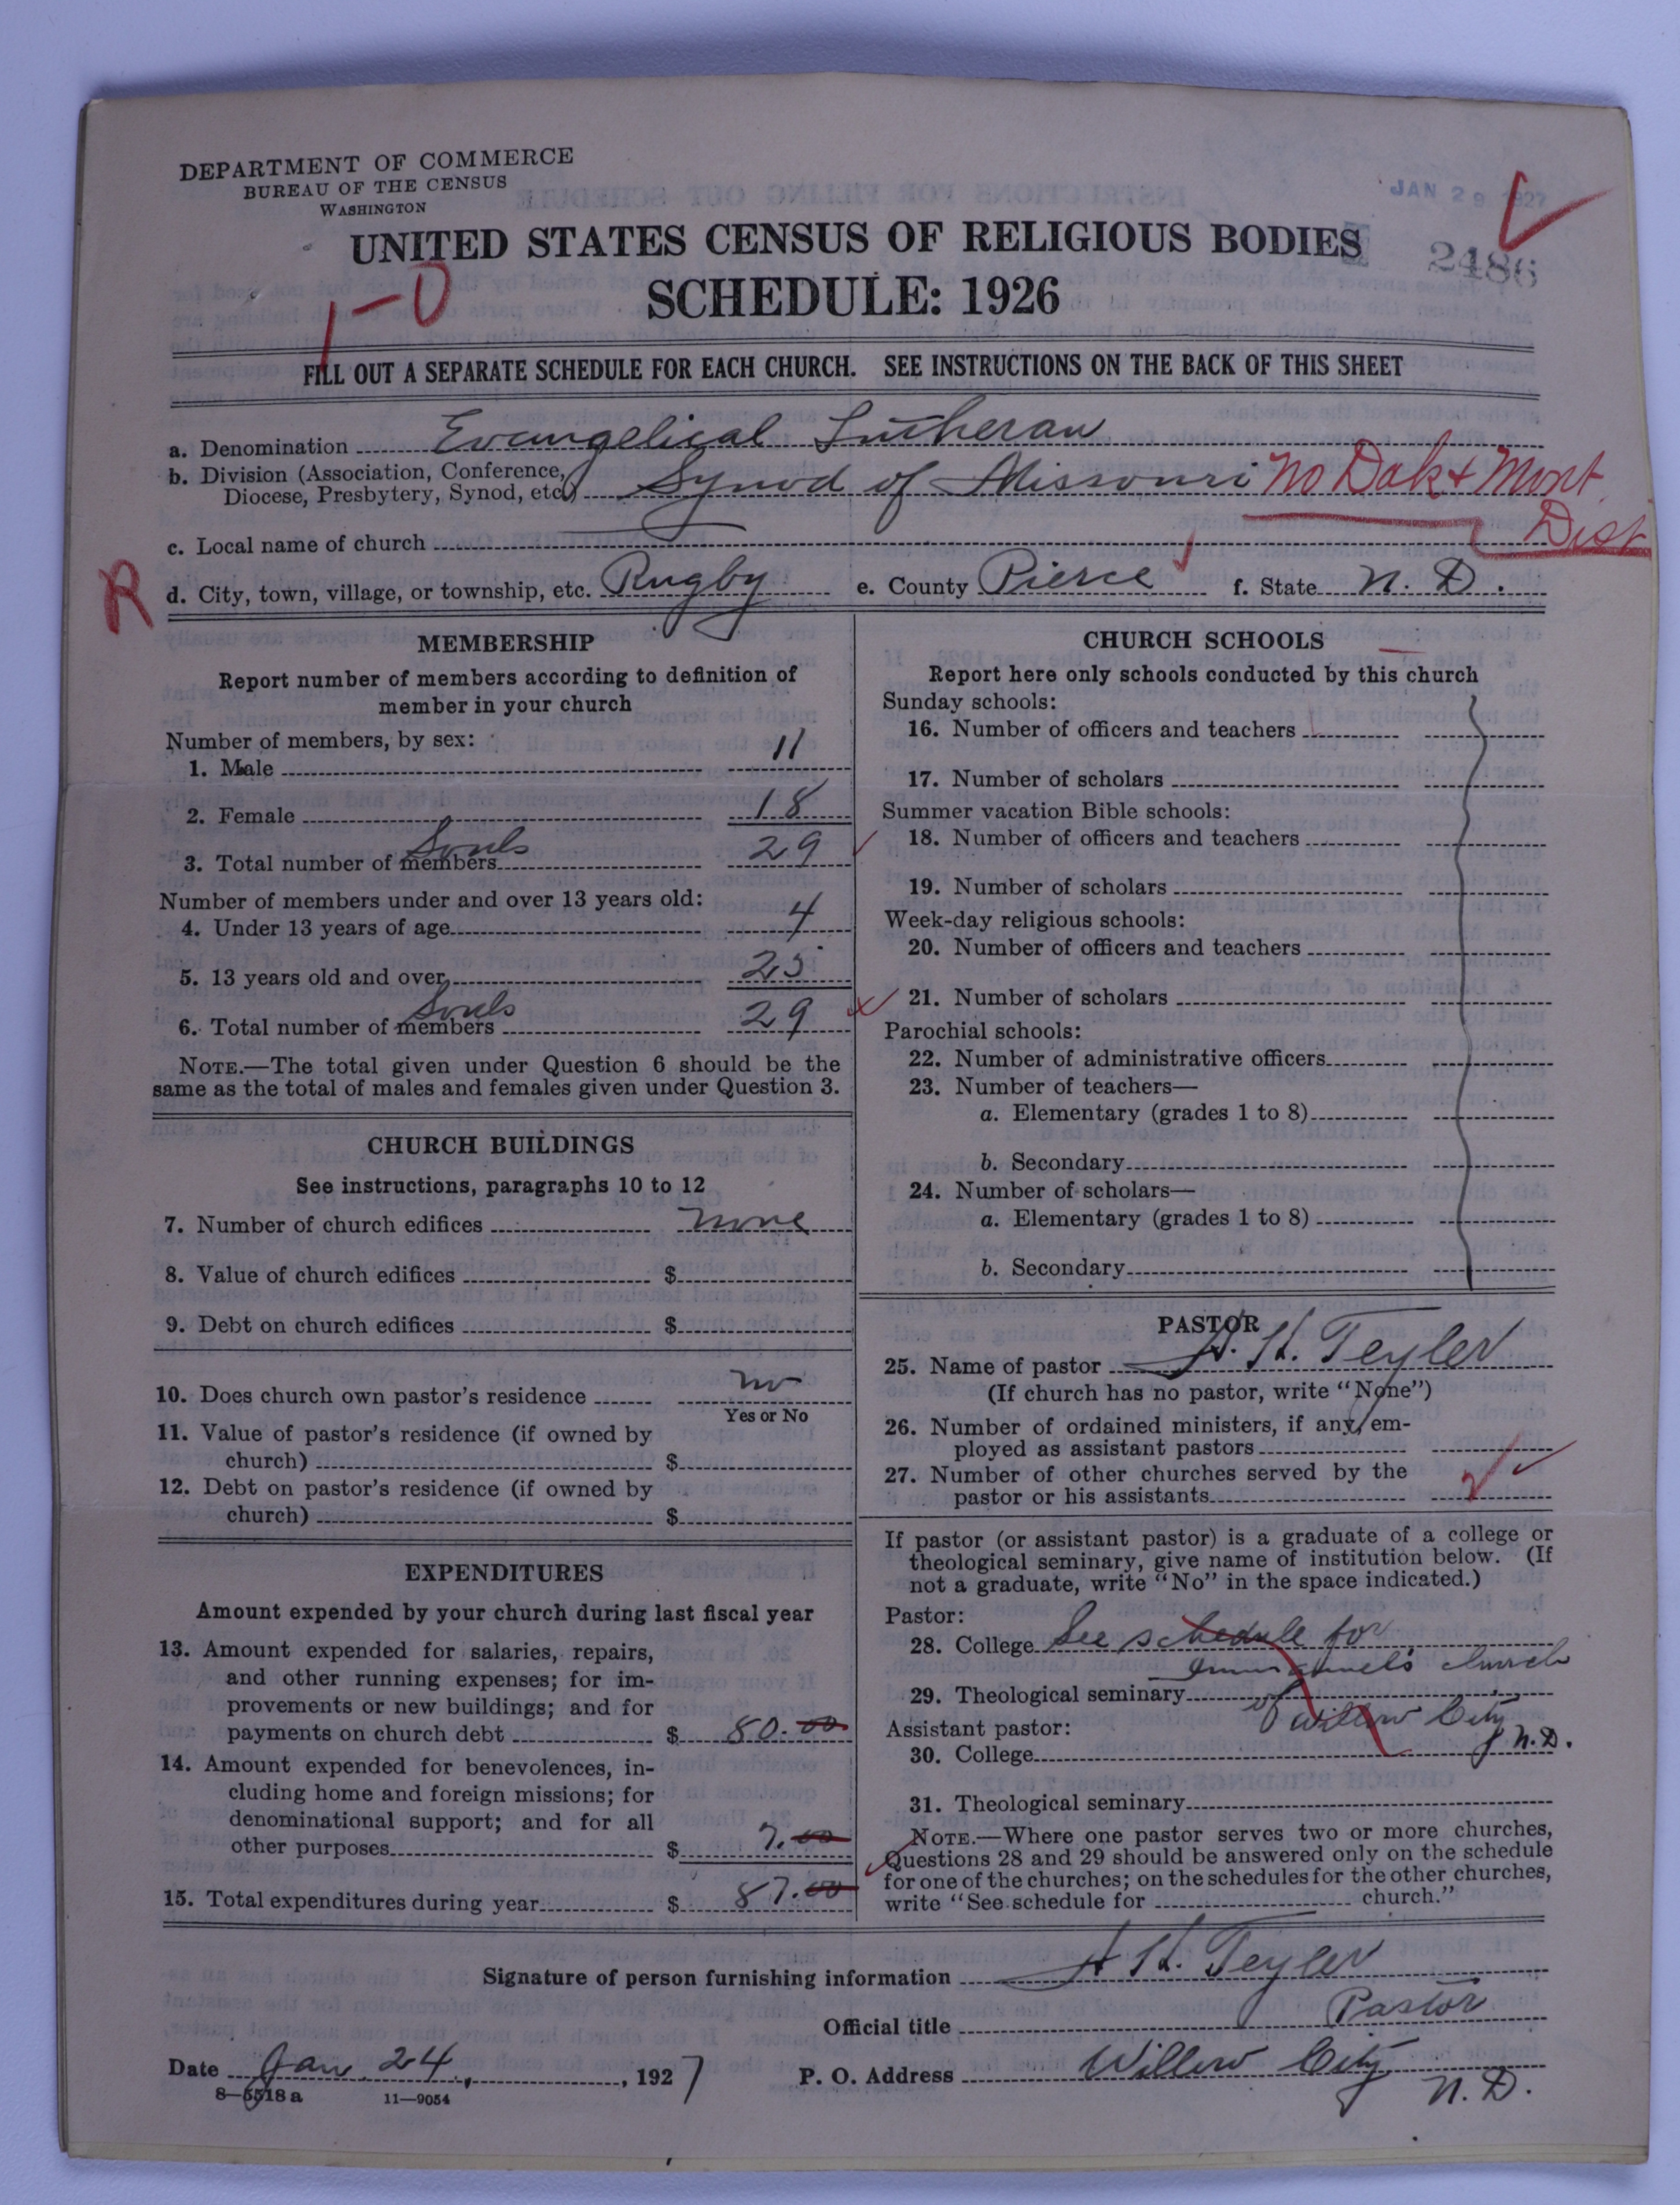 DEPARTMENT OF COMMERCE
BUREAU OF THE CENSUS
WASHINGTON
JAN 29 1927
UNITED STATES CENSUS OF RELIGIOUS BODIES
2486
1-0
SCHEDULE: 1926
FILL OUT A SEPARATE SCHEDULE FOR EACH CHURCH. SEE INSTRUCTIONS ON THE BACK OF THIS SHEET
a. Denomination Evangelical Lutheran
b. Division (Association, Conference, Diocese, Presbytery, Synod, etc.) Synod of Missouri No Dak & Mont Dist
c. Local name of church
R
d. City, town, village, or township, etc. Rugby e. County Pierce f. State N. D.
MEMBERSHIP
Report number of members according to definition of
member in your church
Number of members, by sex:
1. Male 11
2. Female 18
3. Total number of members Souls 29
Number of members under and over 13 years old:
4. Under 13 years of age 4
5. 13 years old and over 25
6. Total number of members Souls 29
NOTE.—The total given under Question 6 should be the
same as the total of males and females given under Question 3.
CHURCH BUILDINGS
See instructions, paragraphs 10 to 12
7. Number of church edifices none
8. Value of church edifices $
9. Debt on church edifices $
10. Does church own pastor's residence no
Yes or No
11. Value of pastor's residence (if owned by
church) $
12. Debt on pastor's residence (if owned by
church) $
EXPENDITURES
Amount expended by your church during last fiscal year
13. Amount expended for salaries, repairs,
and other running expenses; for im-
provements or new buildings; and for
payments on church debt $ 80.00
14. Amount expended for benevolences, in-
cluding home and foreign missions; for
denominational support; and for all
other purposes $ 7.00
15. Total expenditures during year $ 87.00
CHURCH SCHOOLS
Report here only schools conducted by this church
Sunday schools:
16. Number of officers and teachers
17. Number of scholars
Summer vacation Bible schools:
18. Number of officers and teachers
19. Number of scholars
Week-day religious schools:
20. Number of officers and teachers
21. Number of scholars
Parochial schools:
22. Number of administrative officers
23. Number of teachers—
a. Elementary (grades 1 to 8)
b. Secondary
24. Number of scholars—
a. Elementary (grades 1 to 8)
b. Secondary
PASTOR
25. Name of pastor A. H. Teyler
(If church has no pastor, write "None")
26. Number of ordained ministers, if any, em-
ployed as assistant pastors
27. Number of other churches served by the
pastor or his assistants
If pastor (or assistant pastor) is a graduate of a college or
theological seminary, give name of institution below. (If
not a graduate, write "No" in the space indicated.)
Pastor:
28. College See schedule for
Immanuel's church
29. Theological seminary of Willow City
Assistant pastor:
N.D.
30. College
31. Theological seminary
NOTE.—Where one pastor serves two or more churches,
Questions 28 and 29 should be answered only on the schedule
for one of the churches; on the schedules for the other churches,
write "See schedule for church."
Signature of person furnishing information A H. Teyler
Official title Pastor
Date Jan. 24, 1927 P. O. Address Willow City
N. D.
8—5518a 11—9054